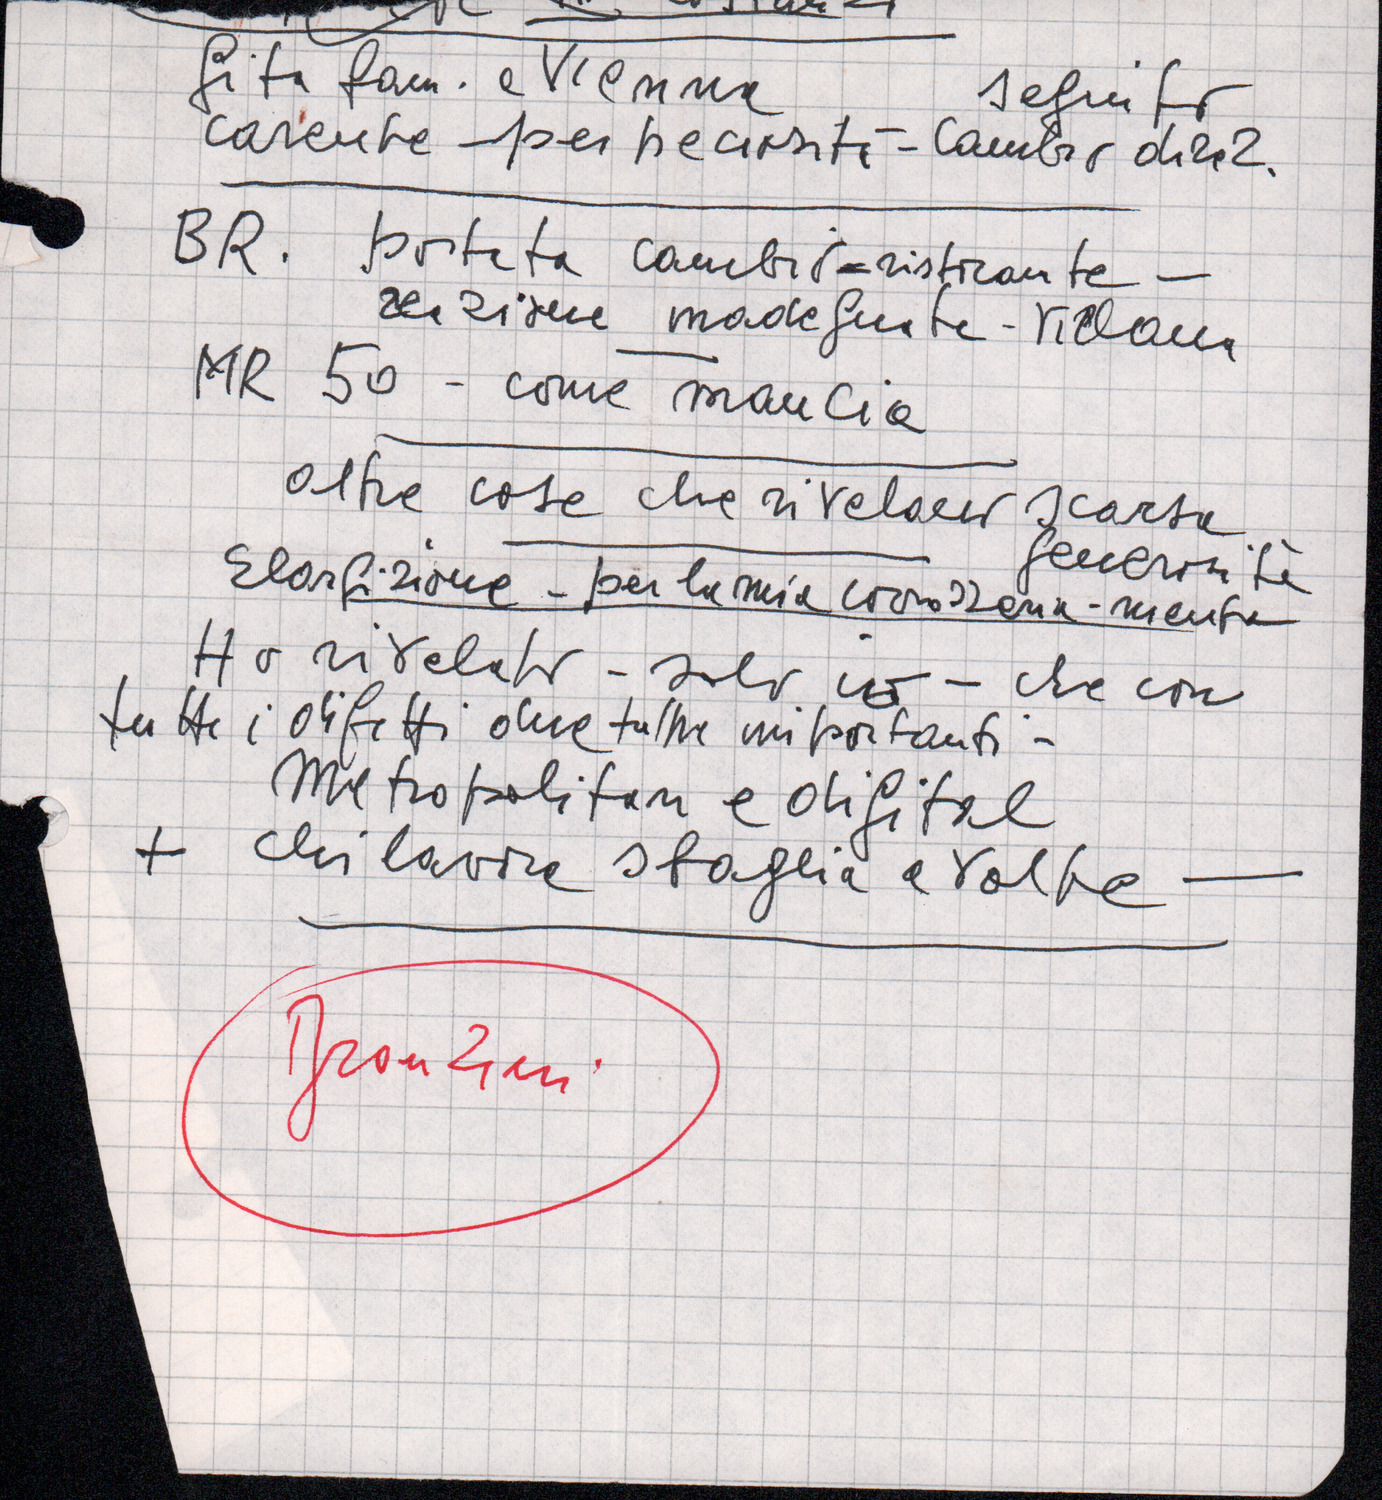 Gita fam. a Vienna seguito
carente - per preciosità - Cambio direz.
BR. portata cambio = ristorante -
reazione inadeguata -
MR 50 - come mancia
altre cose che rivelano scarsa
generosità
Elargizione - per la mia - menta
Ho rivelato - solo io - che con
tutti i difetti due tappe importanti -
Metropolitan e digital
+ chi lavora sbaglia a volte -
Bronzini